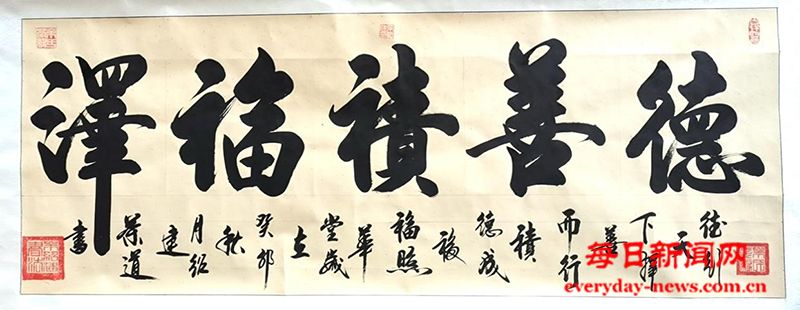 德善積福澤
天下擇善而行積德成福福照華堂歲在癸卯秋月紹建道書
每日新闻网
everyday-news.com.cn